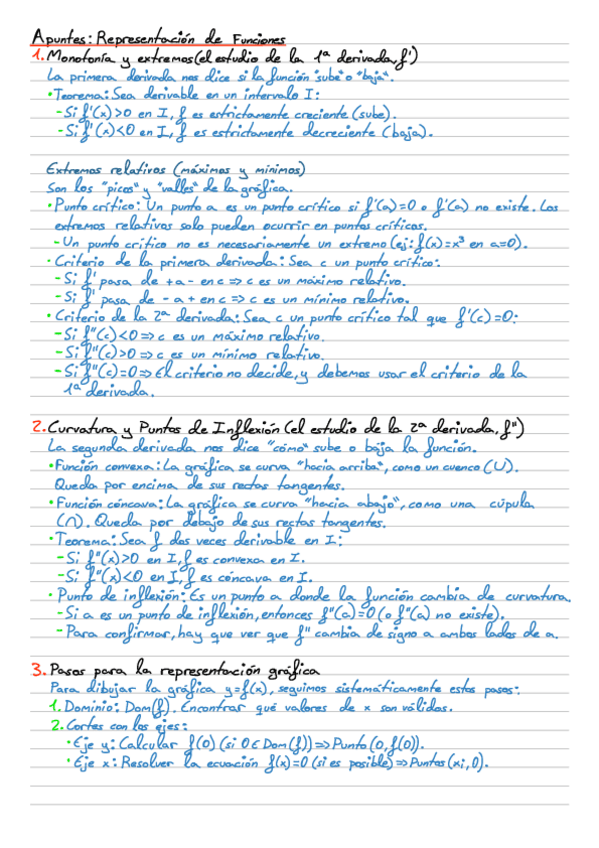 Apuntes: Representación de Funciones
1. Monotonía y extremos (el estudio de la 1ª derivada, f')
La primera derivada nos dice si la función "sube" o "baja".
• Teorema: Sea derivable en un intervalo I:
- Si f'(x)>0 en I, f es estrictamente creciente (sube).
- Si f'(x)<0 en I, f es estrictamente decreciente (baja).
Extremos relativos (máximos y mínimos)
Son los "picos" y "valles" de la gráfica.
• Punto crítico: Un punto a es un punto crítico si f'(a)=0 o f'(a) no existe. Los
extremos relativos solo pueden ocurrir en puntos críticos.
- Un punto crítico no es necesariamente un extremo (ej: f(x)=x³ en a=0).
• Criterio de la primera derivada: Sea c un punto crítico:
- Si f' pasa de + a - en c => c es un máximo relativo.
- Si f' pasa de - a + en c => c es un mínimo relativo.
• Criterio de la 2ª derivada: Sea c un punto crítico tal que f'(c)=0:
- Si f"(c)<0 => c es un máximo relativo.
- Si f"(c)>0 => c es un mínimo relativo.
- Si f"(c)=0 => El criterio no decide, y debemos usar el criterio de la
1ª derivada.
2. Curvatura y Puntos de Inflexión (el estudio de la 2ª derivada, f")
La segunda derivada nos dice "cómo" sube o baja la función.
• Función convexa: La gráfica se curva "hacia arriba", como un cuenco (∪).
Queda por encima de sus rectas tangentes.
• Función cóncava: La gráfica se curva "hacia abajo", como una cúpula
(∩). Queda por debajo de sus rectas tangentes.
• Teorema: Sea f dos veces derivable en I:
- Si f"(x)>0 en I, f es convexa en I.
- Si f"(x)<0 en I, f es cóncava en I.
• Punto de inflexión: Es un punto a donde la función cambia de curvatura.
- Si a es un punto de inflexión, entonces f"(a)=0 (o f"(a) no existe).
- Para confirmar, hay que ver que f" cambia de signo a ambos lados de a.
3. Pasos para la representación gráfica
Para dibujar la gráfica y=f(x), seguimos sistemáticamente estos pasos:
1. Dominio: Dom(f). Encontrar qué valores de x son válidos.
2. Cortes con los ejes:
• Eje y: Calcular f(0) (si 0∈Dom(f)) => Punto (0, f(0)).
• Eje x: Resolver la ecuación f(x)=0 (si es posible) => Puntos (xᵢ, 0).